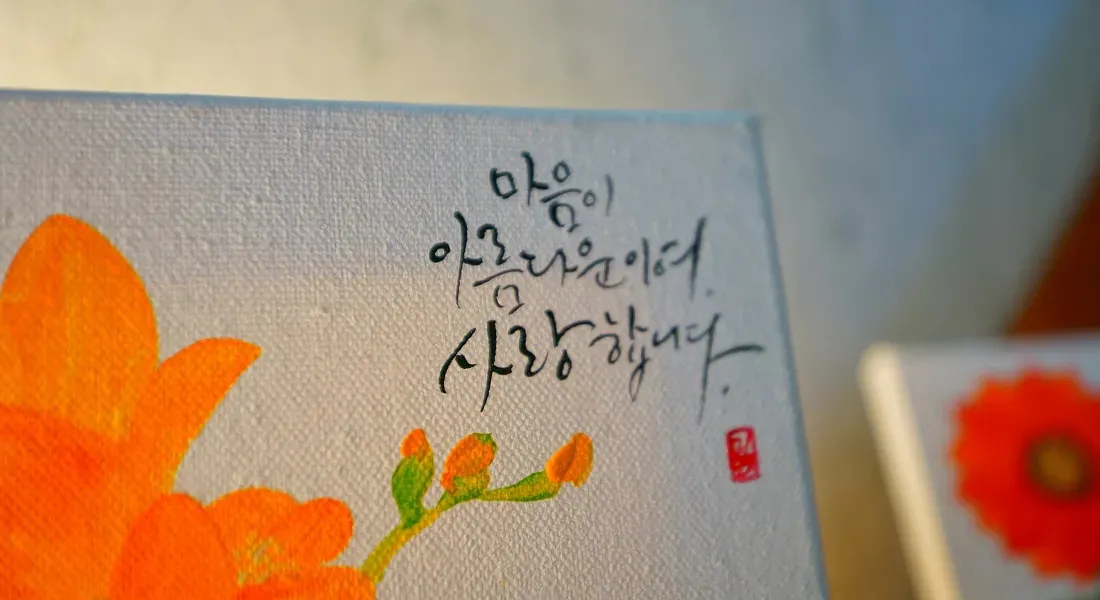 마음이
아름다운이여.
사랑합니다.